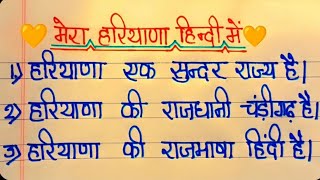 मेरा हरियाणा हिन्दी में
1) हरियाणा एक सुन्दर राज्य है।
2) हरियाणा की राजधानी चंड़ीगढ़ है।
3) हरियाणा की राजभाषा हिंदी है।